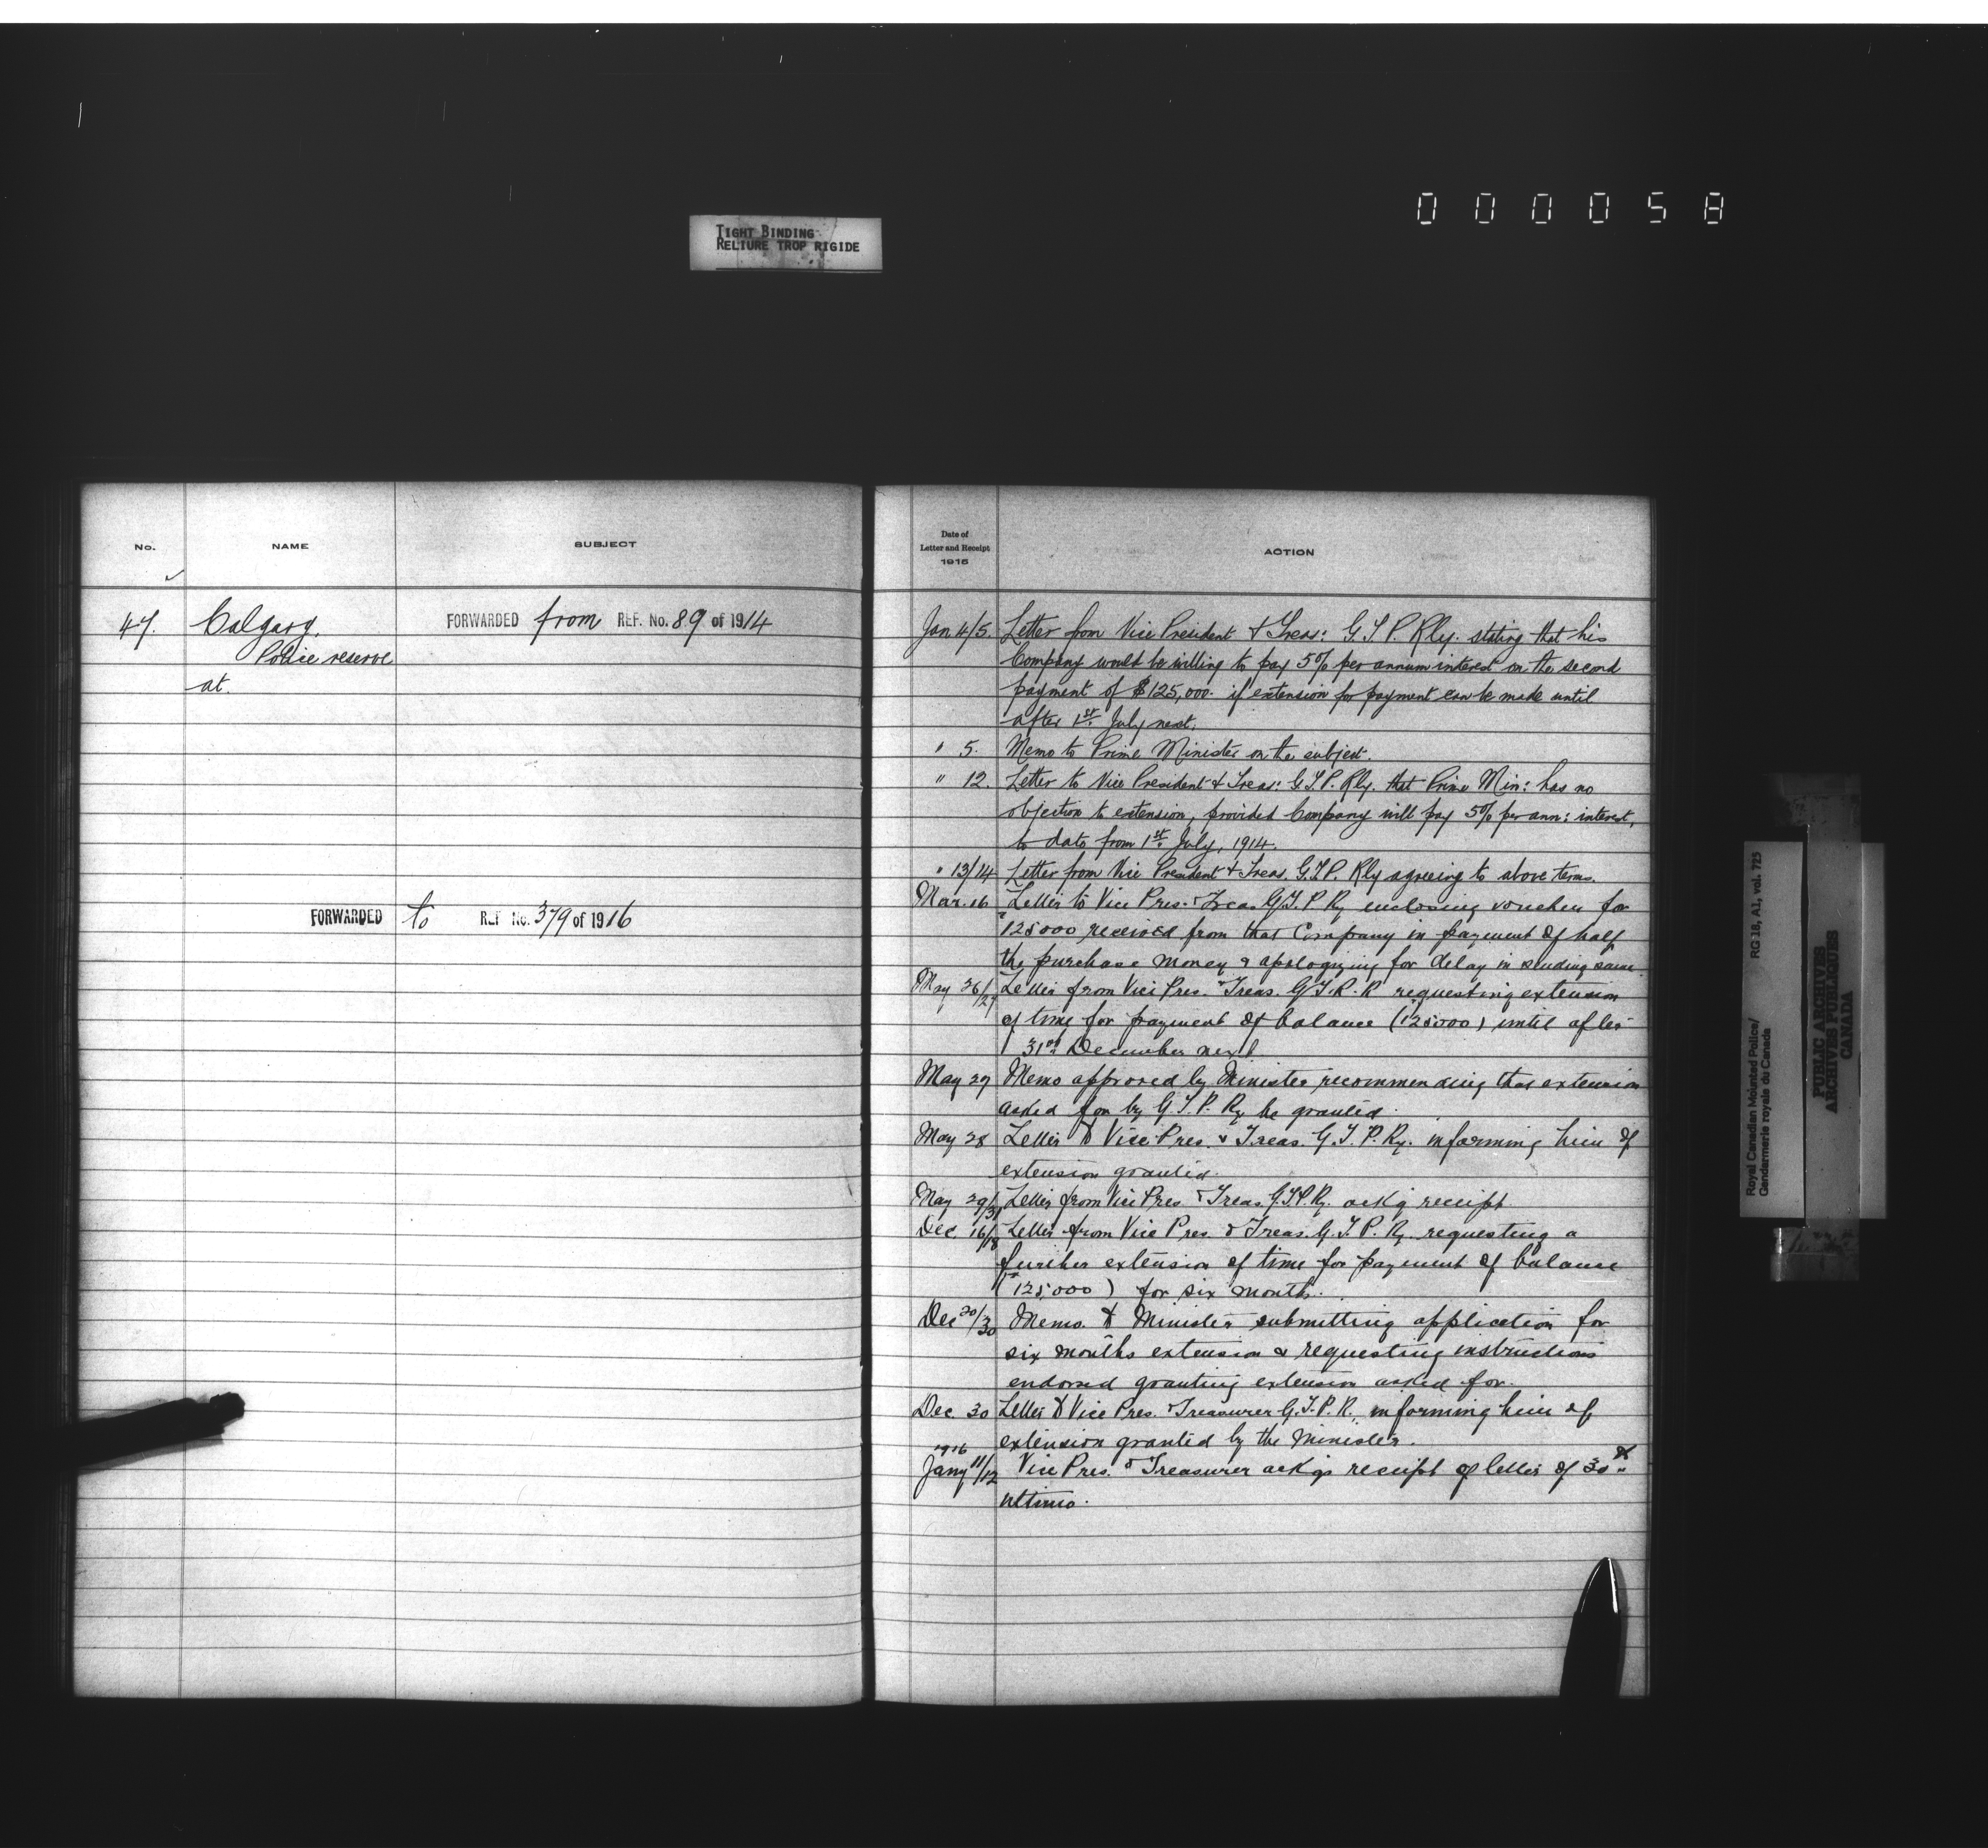 000058
TIGHT BINDING
RELIURE TROP RIGIDE
No.
NAME
SUBJECT
47.
Calgary,
Police reserve
at.
FORWARDED from REF. No. 89 of 1914
FORWARDED to REF. No. 379 of 1916
Date of
Letter and Receipt
1915
ACTION
Jan 4/5. Letter from Vice President & Treas: G.T.P. Rly. stating that his
Company would be willing to pay 5% per annum interest on the second
payment of $125,000. if extension for payment can be made until
after 1st July next.
" 5. Memo to Prime Minister on the subject.
" 12. Letter to Vice President & Treas: G.T.P. Rly. that Prime Min: has no
objection to extension, provided Company will pay 5% per ann: interest,
to date from 1st July, 1914.
" 13/14 Letter from Vice President & Treas. G.T.P. Rly agreeing to above terms.
Mar. 16 Letter to Vice Pres. & Treas G.T.P Ry enclosing voucher for
$125000 received from that Company in payment of half
the purchase money & apologizing for delay in sending same.
May 26/27 Letter from Vice Pres. & Treas. G.T.P. R requesting extension
of time for payment of balance ($125000) until after
31st December next
May 27 Memo approved by Minister recommending that extension
asked for by G.T.P. Ry be granted.
May 28 Letter to Vice Pres. & Treas. G.T.P. Ry. informing him of
extension granted.
May 29/31 Letter from Vice Pres. & Treas G.T.P. Ry. ackg receipt
Dec 16/18 Letter from Vice Pres & Treas. G.T.P. Ry. requesting a
further extension of time for payment of balance
($125,000) for six months.
Dec 20/30 Memo. to Minister submitting application for
six months extension & requesting instructions
endorsed granting extension asked for.
Dec. 30 Letter to Vice Pres. & Treasurer G.T.P.R., informing him of
extension granted by the Minister.
1916
Jany 11/12 Vice Pres. & Treasurer ackgs receipt of letter of 30th
ultimo.
Royal Canadian Mounted Police/ RG 18, A1, vol. 725
Gendarmerie royale du Canada
PUBLIC ARCHIVES
ARCHIVES PUBLIQUES
CANADA